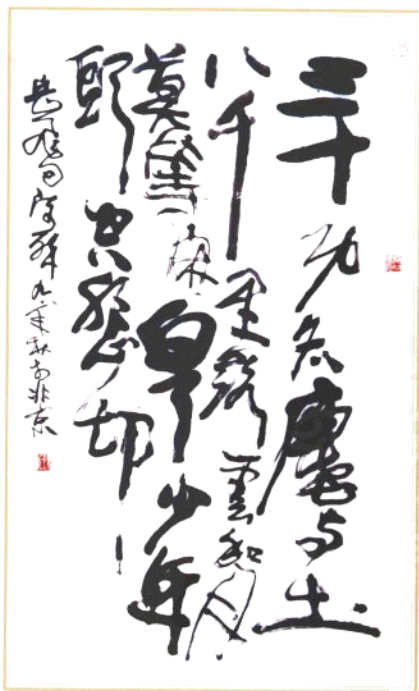 三十功名塵与土
八千里路雲和月
莫等閑白了少年
頭空悲切
岳飛句 年秋於北京